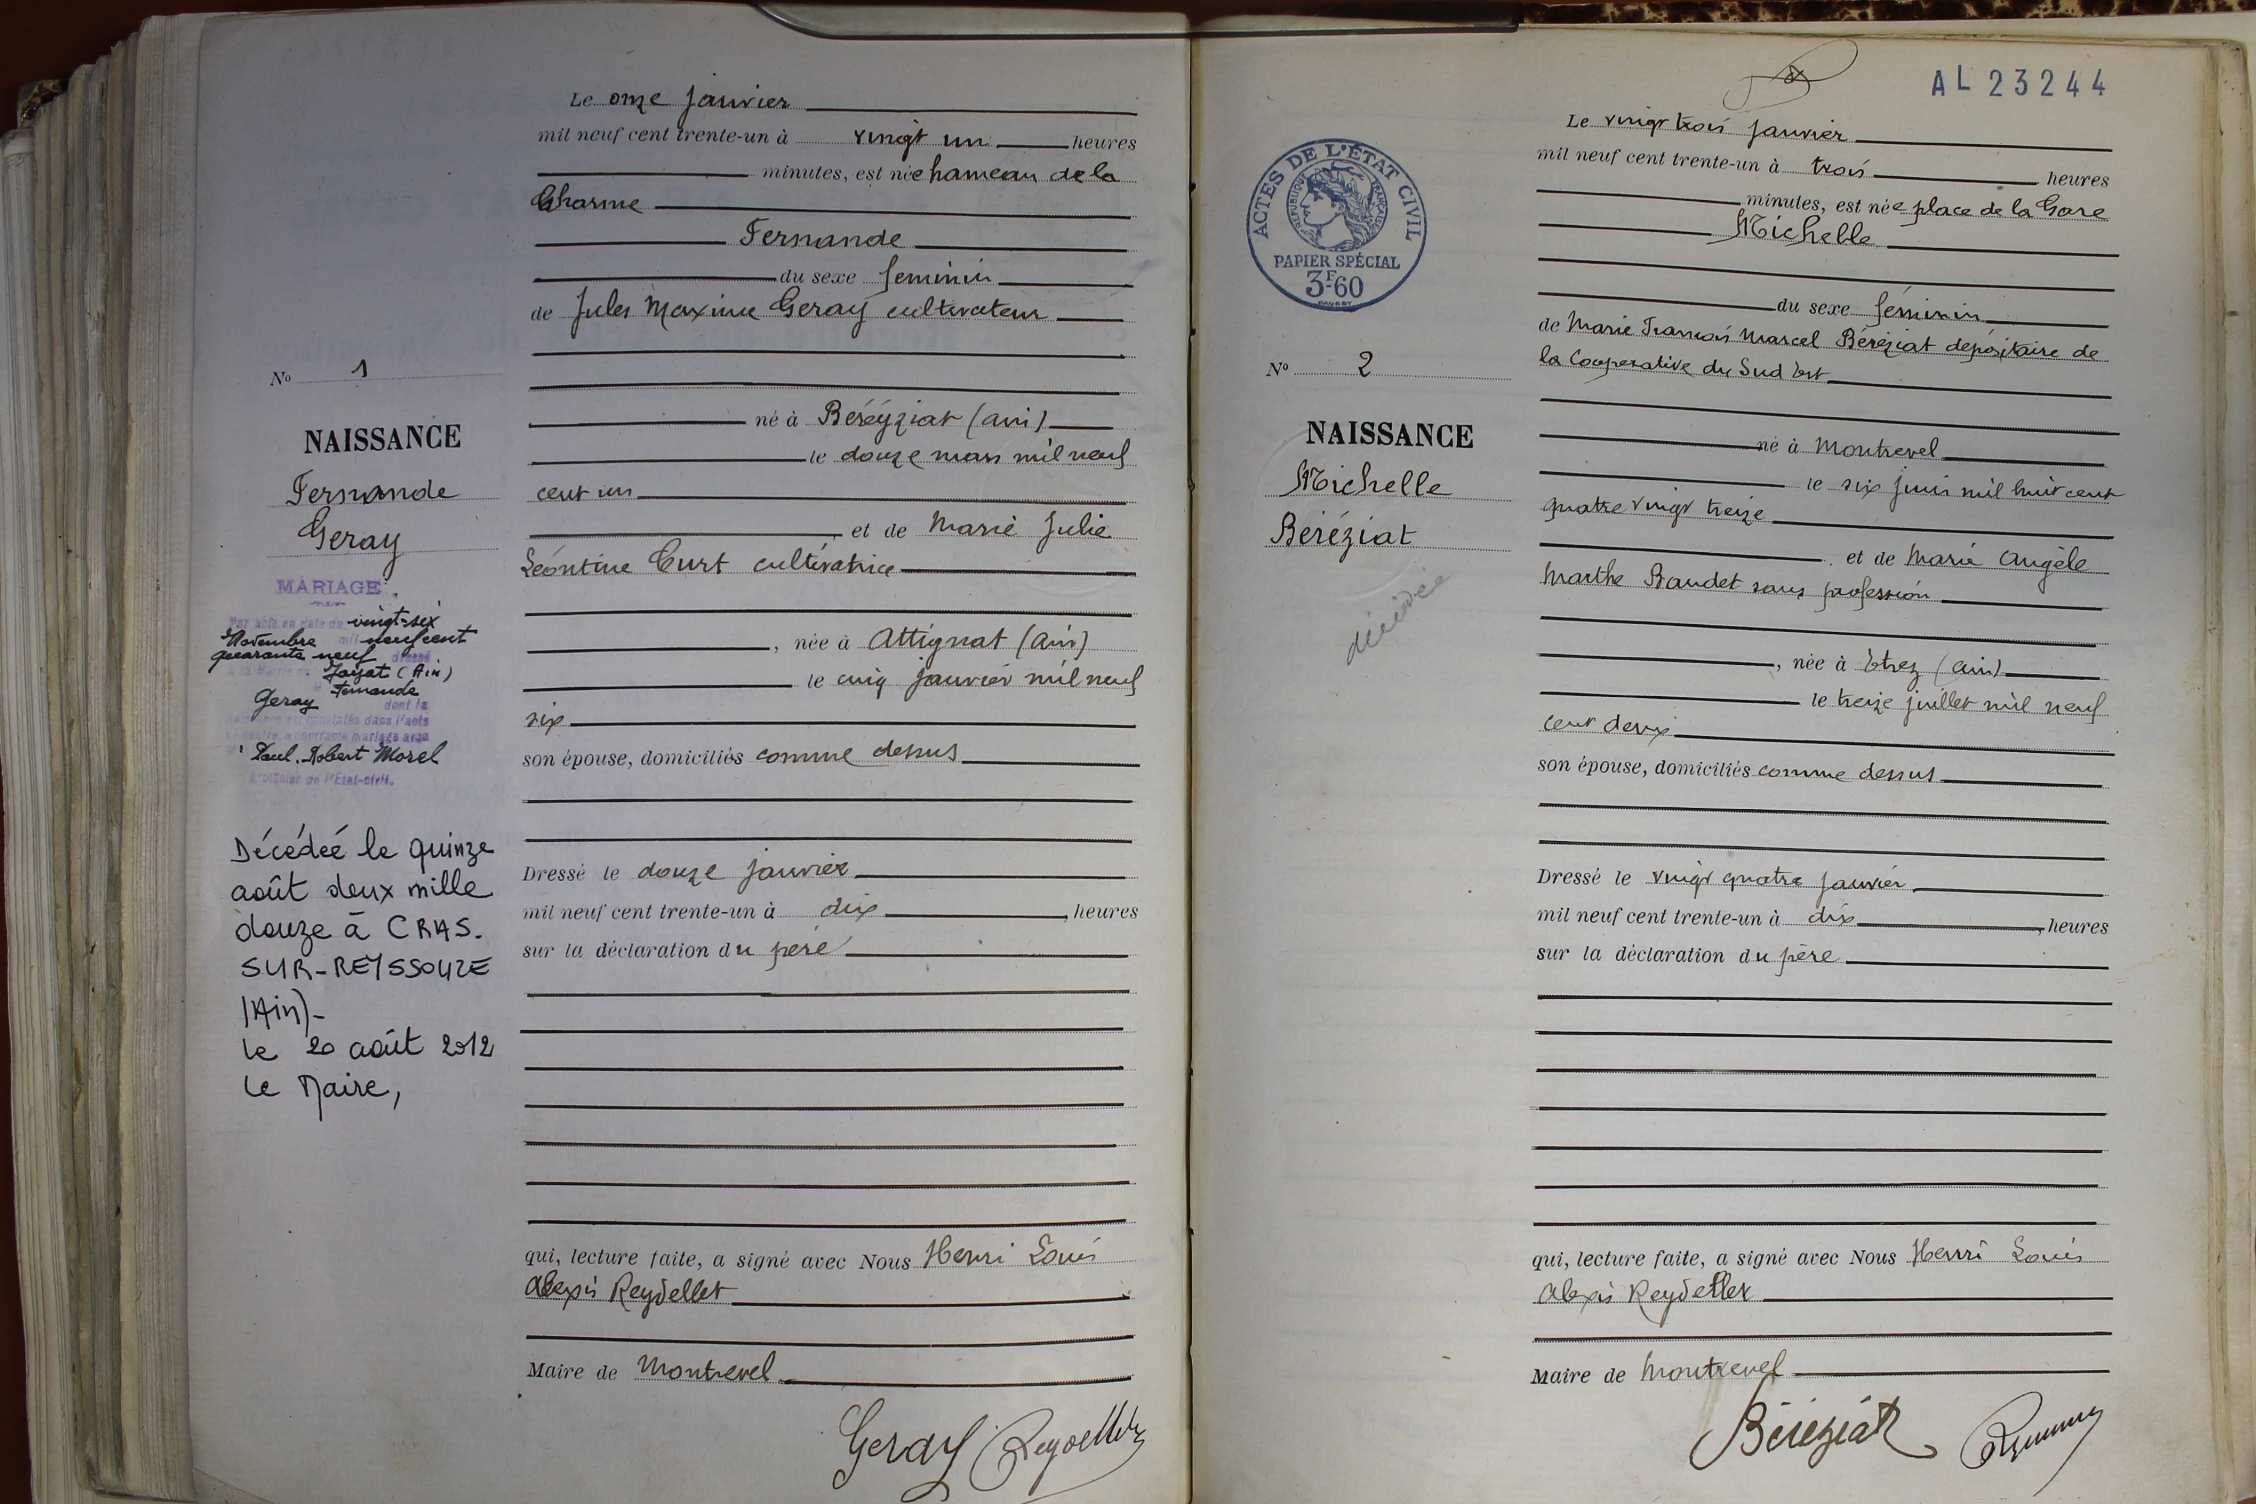 Le onze janvier
mil neuf cent trente-un à vingt un heures
minutes, est née hameau de la
Charme
Fernande
du sexe féminin
de Jules Maxime Geray cultivateur
né à Béréyziat (ain)
le douze mars mil neuf
cent un
et de Marie Julie
Léontine Curt cultivatrice
, née à Attignat (Ain)
le cinq janvier mil neuf
six
son épouse, domiciliés comme dessus
Dressé le douze janvier
mil neuf cent trente-un à dix heures
sur la déclaration du père
qui, lecture faite, a signé avec Nous Henri Louis
Alexis Reydellet
Maire de Montrevel
Geray Reydellet
No 1
NAISSANCE
Fernande
Geray
MARIAGE
Par acte en date du vingt-six
Novembre mil neuf cent
quarante neuf dressé
Jayat (Ain)
Fernande
Geray dont la
dans l'acte
contracté mariage avec
Paul. Robert Morel
L'officier de l'Etat-civil.
Décédée le quinze
août deux mille
douze à CRAS-
SUR-REYSSOUZE
(Ain)-
le 20 août 2012
Le Maire,
AL 23244
ACTES DE L'ÉTAT CIVIL
RÉPUBLIQUE FRANÇAISE
PAPIER SPÉCIAL
3F.60
No 2
NAISSANCE
Michelle
Béréziat
décédée
Le vingt trois janvier
mil neuf cent trente-un à trois heures
minutes, est née place de la Gare
Michelle
du sexe féminin
de Marie François Marcel Béréziat dépositaire de
la Cooperative du Sud Est
né à Montrevel
le six juin mil huit cent
quatre vingt treize
et de Marie Angèle
Marthe Baudet sans profession
, née à Etrez (ain)
le treize juillet mil neuf
cent deux
son épouse, domiciliés comme dessus
Dressé le vingt quatre janvier
mil neuf cent trente-un à dix heures
sur la déclaration du père
qui, lecture faite, a signé avec Nous Henri Louis
Alexis Reydellet
Maire de Montrevel
Béréziat